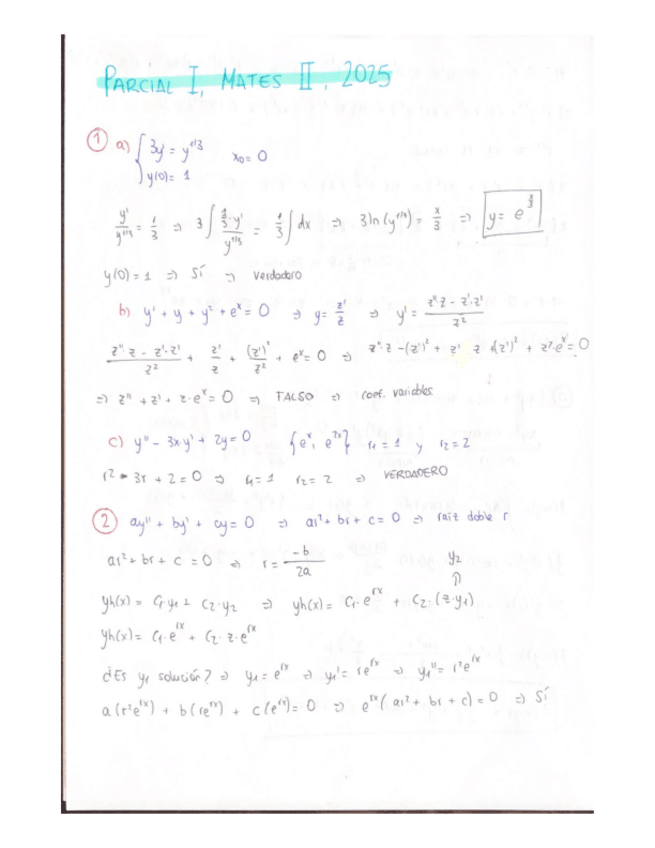 PARCIAL I, MATES II, 2025
① a) { 3y' = y^{1/3} x₀ = 0
y(0) = 1
y'/y^{1/3} = 1/3 ⇒ 3∫ (1/3·y')/y^{1/3} = 1/3 ∫dx ⇒ 3ln(y^{1/3}) = x/3 ⇒ y = e^{x/3}
y(0) = 1 ⇒ Sí ⇒ Verdadero
b) y' + y + y² + eˣ = 0 ⇒ y = z'/z ⇒ y' = (z''·z - z'·z')/z²
(z''·z - z'·z')/z² + z'/z + (z')²/z² + eˣ = 0 ⇒ z''·z - (z')² + z'·z + (z')² + z²·eˣ = 0
⇒ z'' + z' + z·eˣ = 0 ⇒ FALSO ⇒ coef. variables
c) y'' - 3xy' + 2y = 0 {eˣ, e²ˣ} r₁ = 1, r₂ = 2
r² - 3r + 2 = 0 ⇒ r₁ = 1 r₂ = 2 ⇒ VERDADERO
② ay'' + by' + cy = 0 ⇒ ar² + br + c = 0 ⇒ raíz doble r
ar² + br + c = 0 ⇒ r = -b/2a y₂
yh(x) = c₁·y₁ + c₂·y₂ ⇒ yh(x) = c₁·e^{rx} + c₂·(z·y₁)
yh(x) = c₁·e^{rx} + c₂·z·e^{rx}
¿Es y₁ solución? ⇒ y₁ = e^{rx} ⇒ y₁' = re^{rx} ⇒ y₁'' = r²e^{rx}
a(r²e^{rx}) + b(re^{rx}) + c(e^{rx}) = 0 ⇒ e^{rx}(ar² + br + c) = 0 ⇒ Sí